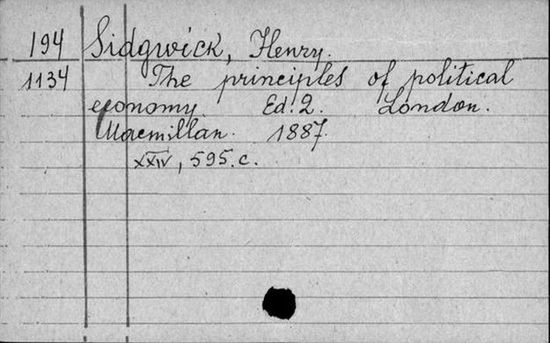 194 Sidgwick, Henry.
1134 The principles of political
economy Ed. 2. London.
Macmillan. 1887.
XXIV, 595.c.